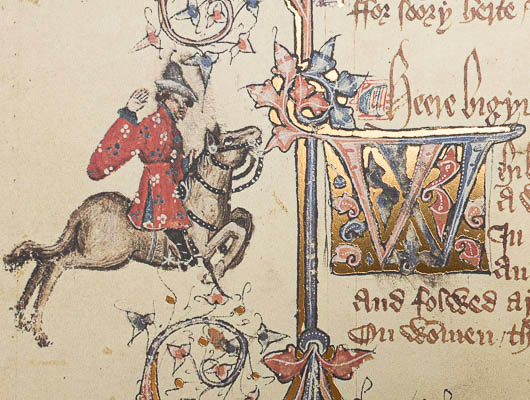 ffor soory herte
Heere bigyn
W
A w
In
An
And folwed ay
On wommen, th